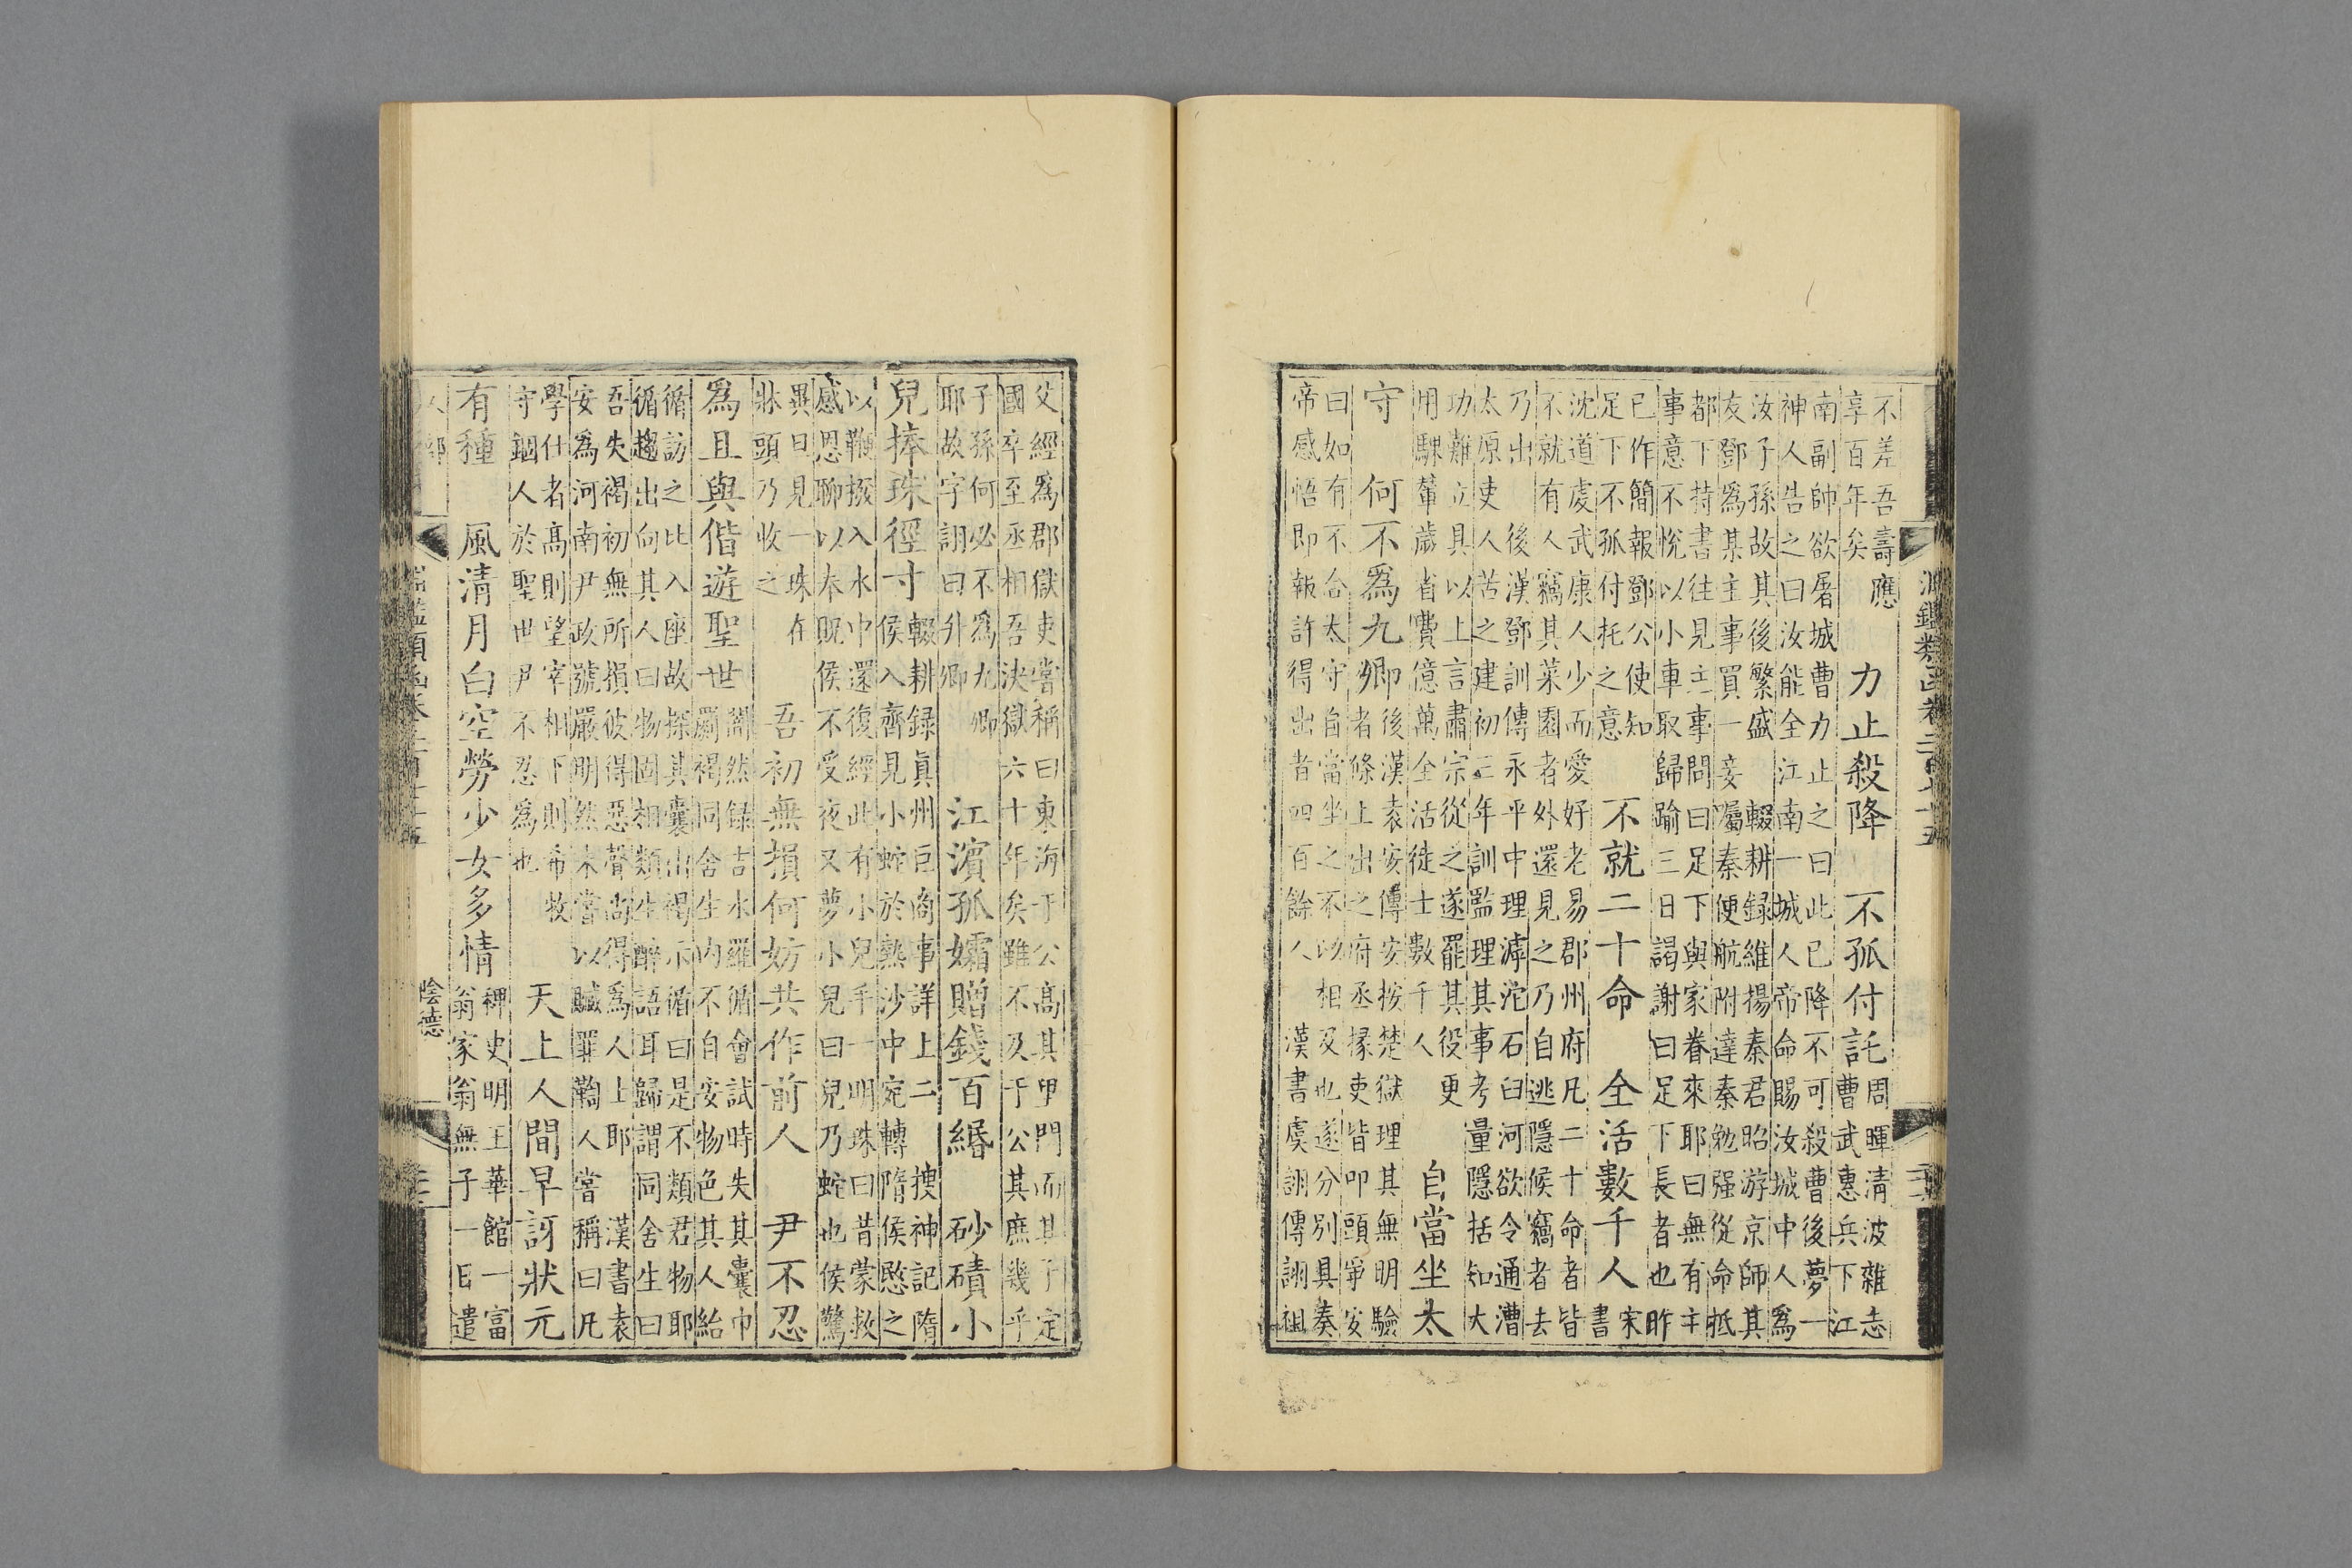 淵鑑類函卷二百七十五
不差吾壽應
享百年矣
力止殺降
不孤付託
周暉清波雜志
曹武惠兵下江
南副帥欲屠城曹力止之曰此已降不可殺曹後夢一
神人告之曰汝能全江南一城人帝命賜汝城中人爲
汝子孫故其後繁盛
輟耕錄維揚秦君昭游京師其
友鄧爲某主事買一妾囑秦便航附達秦勉强從命抵
都下持書往見主事問曰足下與家眷來耶曰無有主
事意不悅以小車取歸踰三日謁謝曰足下長者也昨
已作簡報鄧公使知
足下不孤付托之意
不就二十命
全活數千人
宋書
沈道虔武康人少而愛好老易郡州府凡二十命者皆
不就有人竊其菜園者外還見之乃自逃隱候竊者去
乃出
後漢鄧訓傳永平中理滹沱石臼河欲令通漕
太原吏人苦之建初三年訓監理其事考量隱括知大
功難立具以上言肅宗從之遂罷其役更
用驢輦歲省費億萬全活徒士數千人
自當坐太
守
何不爲九卿
後漢袁安傳安按楚獄理其無明驗
者條上出之府丞掾吏皆叩頭爭安
曰如有不合太守自當坐之不以相及也遂分別具奏
帝感悟卽報許得出者四百餘人
漢書虞詡傳詡祖
父經爲郡獄吏嘗稱曰東海于公高其里門而其子定
國卒至丞相吾決獄六十年矣雖不及于公其庶幾乎
子孫何必不爲九卿
耶故字詡曰升卿
江濱孤孀贈錢百緡
砂磧小
兒捧珠徑寸
輟耕錄眞州巨商事詳上二
搜神記隋
侯入齊見小蛇於熱沙中宛轉隋侯愍之
以鞭撥入水中還復經此有小兒手一明珠曰昔蒙救
感恩聊以奉貺侯不受夜又夢小兒曰兒乃蛇也侯驚
異旦見一珠在
牀頭乃收之
吾初無損何妨共作前人
尹不忍
爲且與偕遊聖世
闇然錄吉水羅循會試時失其囊巾
罽褐同舍生内不自安物色其人紿
循訪之比入座故探其囊出褐示循曰是不類君物耶
循趨出向其人曰物固相類生醉語耳歸謂同舍生曰
吾失褐初無所損彼得惡聲尚得爲人上耶
漢書袁
安爲河南尹政號嚴明然未嘗以贓罪鞫人嘗稱曰凡
學仕者高則望宰相下則希牧
守錮人於聖世尹不忍爲也
天上人間早訝狀元
有種
風清月白空勞少女多情
稗史明王華館一富
翁家翁無子一日遣
人部
淵鑑類函卷二百七十五
陰德